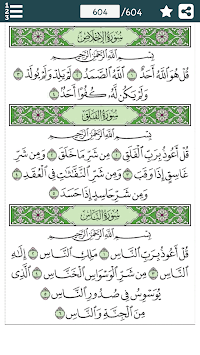 604 /604
سورة الإخلاص
بِسْمِ ٱللَّهِ ٱلرَّحْمَٰنِ ٱلرَّحِيمِ
قُلْ هُوَ ٱللَّهُ أَحَدٌ ١ ٱللَّهُ ٱلصَّمَدُ ٢ لَمْ يَلِدْ وَلَمْ يُولَدْ
٣ وَلَمْ يَكُن لَّهُۥ كُفُوًا أَحَدٌۢ ٤
سورة الفلق
بِسْمِ ٱللَّهِ ٱلرَّحْمَٰنِ ٱلرَّحِيمِ
قُلْ أَعُوذُ بِرَبِّ ٱلْفَلَقِ ١ مِن شَرِّ مَا خَلَقَ ٢ وَمِن شَرِّ
غَاسِقٍ إِذَا وَقَبَ ٣ وَمِن شَرِّ ٱلنَّفَّٰثَٰتِ فِى ٱلْعُقَدِ ٤
وَمِن شَرِّ حَاسِدٍ إِذَا حَسَدَ ٥
سورة الناس
بِسْمِ ٱللَّهِ ٱلرَّحْمَٰنِ ٱلرَّحِيمِ
قُلْ أَعُوذُ بِرَبِّ ٱلنَّاسِ ١ مَلِكِ ٱلنَّاسِ ٢ إِلَٰهِ
ٱلنَّاسِ ٣ مِن شَرِّ ٱلْوَسْوَاسِ ٱلْخَنَّاسِ ٤ ٱلَّذِى
يُوَسْوِسُ فِى صُدُورِ ٱلنَّاسِ ٥
مِنَ ٱلْجِنَّةِ وَٱلنَّاسِ ٦